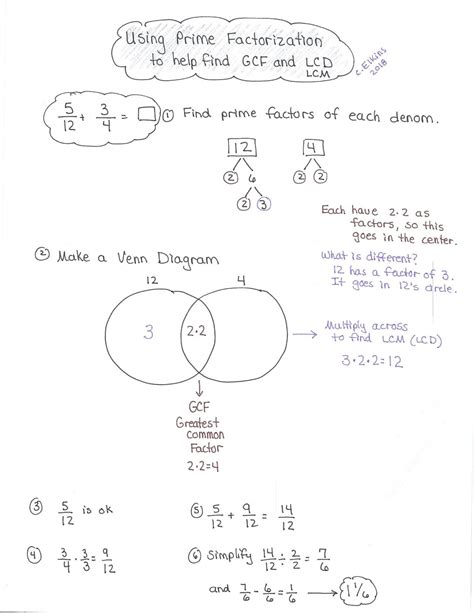 Using Prime Factorization
to help find GCF and LCD
LCM
C. Elkins
2018
5/12 + 3/4 = □
① Find prime factors of each denom.
12 4
2 6 2 2
2 3
Each have 2·2 as
factors, so this
goes in the center.
② Make a Venn Diagram
What is different?
12 has a factor of 3.
It goes in 12's circle.
12 4
3 2·2
→ Multiply across
to find LCM (LCD)
3·2·2=12
GCF
Greatest
Common
Factor
2·2=4
③ 5/12 is ok
④ 3/4 · 3/3 = 9/12
⑤ 5/12 + 9/12 = 14/12
⑥ Simplify 14/12 ÷ 2/2 = 7/6
and 7/6 - 6/6 = 1/6 → 1 1/6